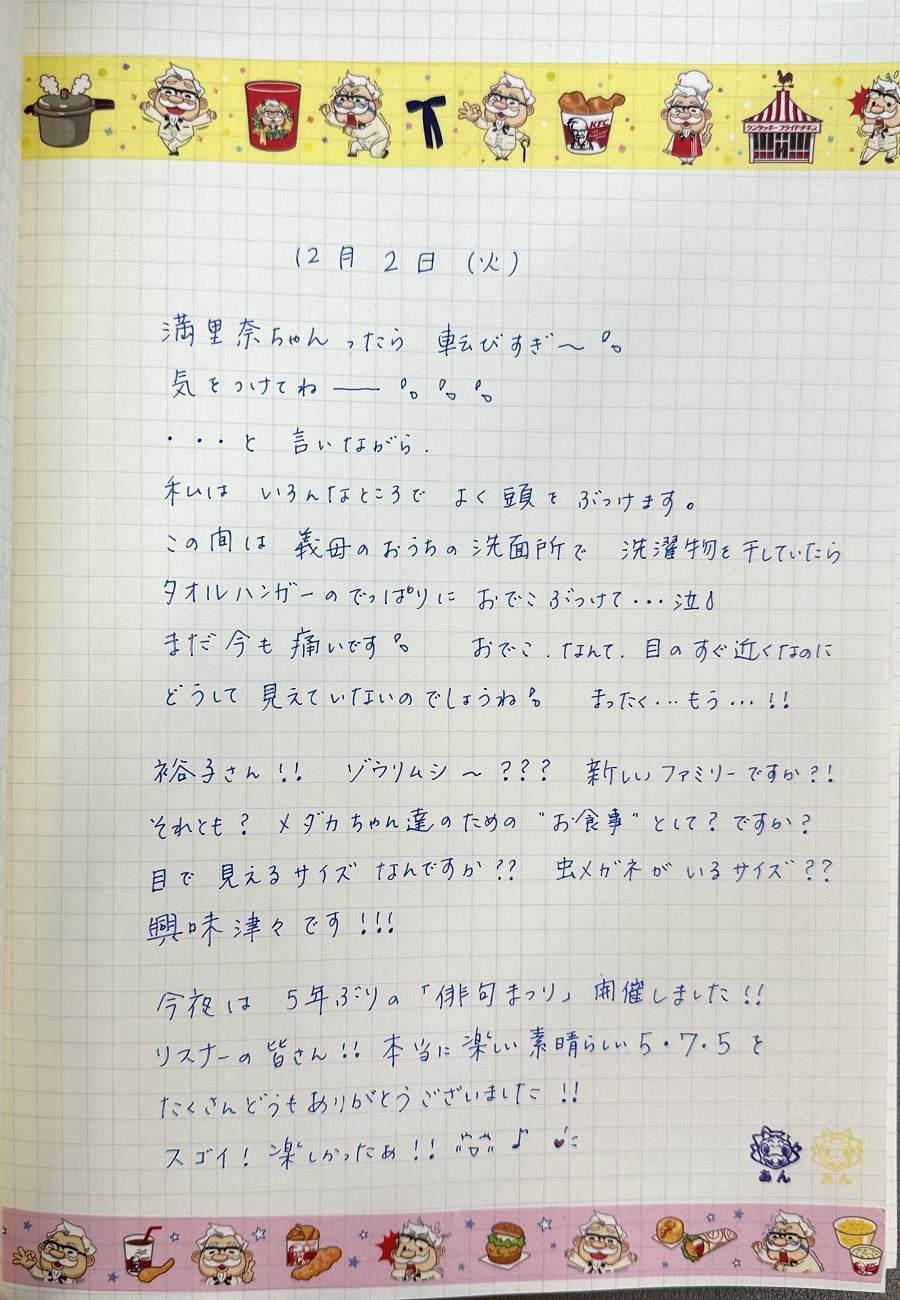 KFC
ケンタッキーフライドチキン
12月 2日 (火)
満里奈ちゃんったら 転びすぎ〜
気をつけてね ――
・・・と 言いながら、
私は いろんなところで よく頭を ぶつけます。
この間は 義母のおうちの洗面所で 洗濯物を干していたら
タオルハンガーのでっぱりに おでこぶつけて・・・泣
まだ今も痛いです おでこ、なんて、目のすぐ近くなのに
どうして見えていないのでしょうね まったく・・・もう・・・!!
裕子さん!! ゾウリムシ〜??? 新しいファミリーですか?!
それとも? メダカちゃん達のための "お食事" として?ですか?
目で見えるサイズなんですか?? 虫メガネがいるサイズ??
興味津々です!!!
今夜は 5年ぶりの「俳句まつり」開催しました!!
リスナーの皆さん!! 本当に楽しい素晴らしい5・7・5を
たくさんどうもありがとうございました!!
スゴイ! 楽しかったぁ!! ♪
あん
あん